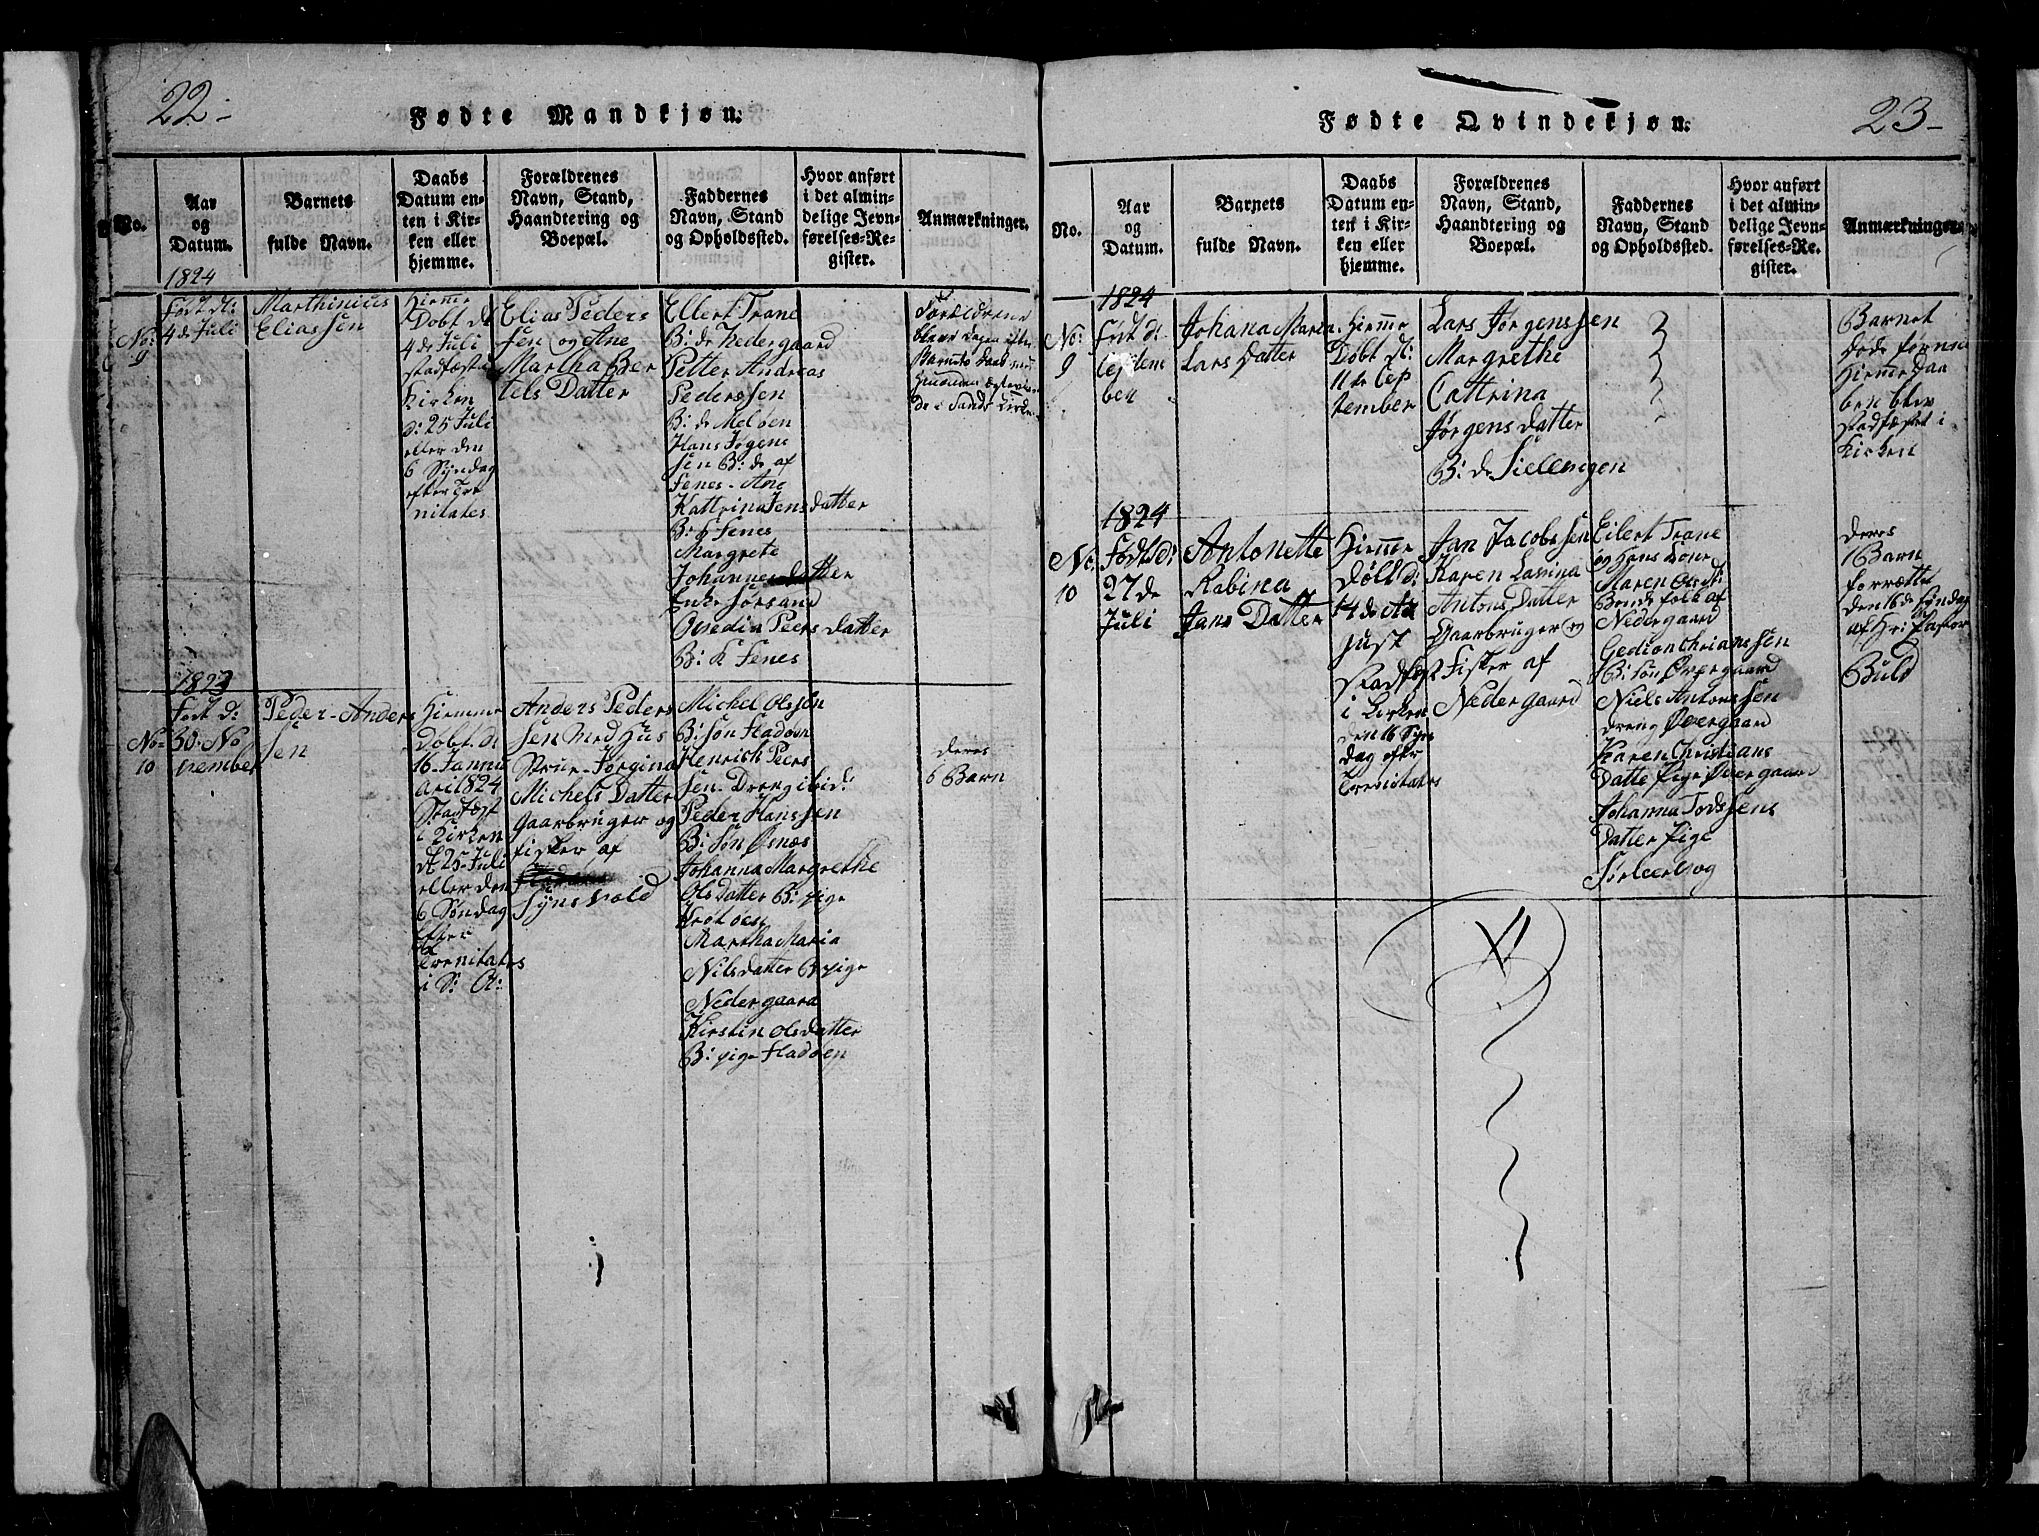 22-
Fødte Mandkjøn.
No.
Aar
og
Datum.
Barnets
fulde Navn.
Daabs
Datum en-
ten i Kir-
ken eller
hjemme.
Forældrenes
Navn, Stand,
Haandtering og
Boepæl.
Faddernes
Navn, Stand
og Opholdssted.
Hvor anført
i det almin-
delige Jevn-
førelses-Re-
gister.
Anmærkninger.
No:
9
1824
Født d:
4 de Juli
Marthinius
Eliassen
Hiemme
Døbt d
4 de Juli
stadfæste
Kirken
d: 25 Juli
eller den
6 Syndag
efter Tre
nitates
Elias Peders
sen og Ane
Martha Ber
tels Datter
Ellert Trane
B: de Nedergaard
Petter Andreas
Pederssen
B: de Meløen
Hans Jøgens
sen B: de af
Fenes - Ane
Kattrina Jens datter
B: k Fenes
Margrete
Johannesdatter
Enke Sørsand
Peers datter
B: k Fenes
Forældrene
No:
10
1823
Født d:
30 No
vember
Peder Anders
sen
Hiemme
Døbt d
16 Janu
ari 1824
Stadfæst
i Kirken
d 25 Juli
eller den
6 Søndag
Efter
Trenitates
i S: A:
Anders Peders
sen Med Hus
strue Jørgina
Michels Datter
Gaarbruger og
fisker af
Synsvold
Michel Olssøn
B: søn Fladøen
Henrich Peers
sen - Dreng ibid:
Peder Hanssen
B: Søn Øsnæs
Johanna Margrethe
Olsdatter B: pige
Martha Maria
Nilsdatter B pige
Nedergaard
Kirstin Olsdatter
B: pige Fladøen
deres
6 Barn
23-
Fødte Qvindekjøn.
No.
Aar
og
Datum.
Barnets
fulde Navn.
Daabs
Datum en-
ten i Kir-
ken eller
hjemme.
Forældrenes
Navn, Stand,
Haandtering og
Boepæl.
Faddernes
Navn, Stand
og Opholdssted.
Hvor anført
i det almin-
delige Jevn-
førelses-Re-
gister.
Anmærkninger.
No:
9
1824
Født d:
ber
Johana Maria
Lars Datter
Hiemme
Døbt d:
11 de Sep
tember
Lars Jørgenssen
Margrethe
Cattrina
Jørgens datter
B: de
Barnet
døde
Hieme Daa
ben blev
stadfæstet i
Kirken
No:
10
1824
Født d:
27 de
Juli
Antonette
Rabina
Jans Datter
Hiemme
Døbt d:
14 de Au
gust
stadfæst
i Kirken
den 16 Syn
dag efter
Trenitates
Jan Jacobssen
Karen Lavina
Antons Datter
Gaarbruger og
Fisker af
Nedergaard
Eilert Trane
og Hans Kone
Maren Ols D:
Bonde folk af
Nedergaard
Gedion Chrianssen
B: Søn Øvergaard
Niels Antonssen
dreng Øvergaard
Karen Christians
Datte Pige Øvergaard
Johanna Todssens
Datter Pige
deres
1 Barn
forrættet
den 16 de Syndag
af Hr: Pastor
Buld